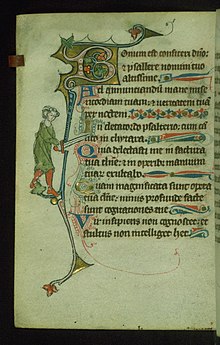 Bonum est confiteri dño:
et psallere nomini tuo
altissime.
Ad annunciandū mane mise
ricordiam tuam: et veritatem tuam
per noctem.
In decacordo psalterio: cum can
tico in cythara.
Quia delectasti me in factura
tua dñe: et in operibus manuum
tuarum exultabo.
Quam magnificata sunt opera
tua dñe: nimis profunde facte
sunt cogitationes tue.
Vir insipiens non cognoscet: et
stultus non intelliget hec.